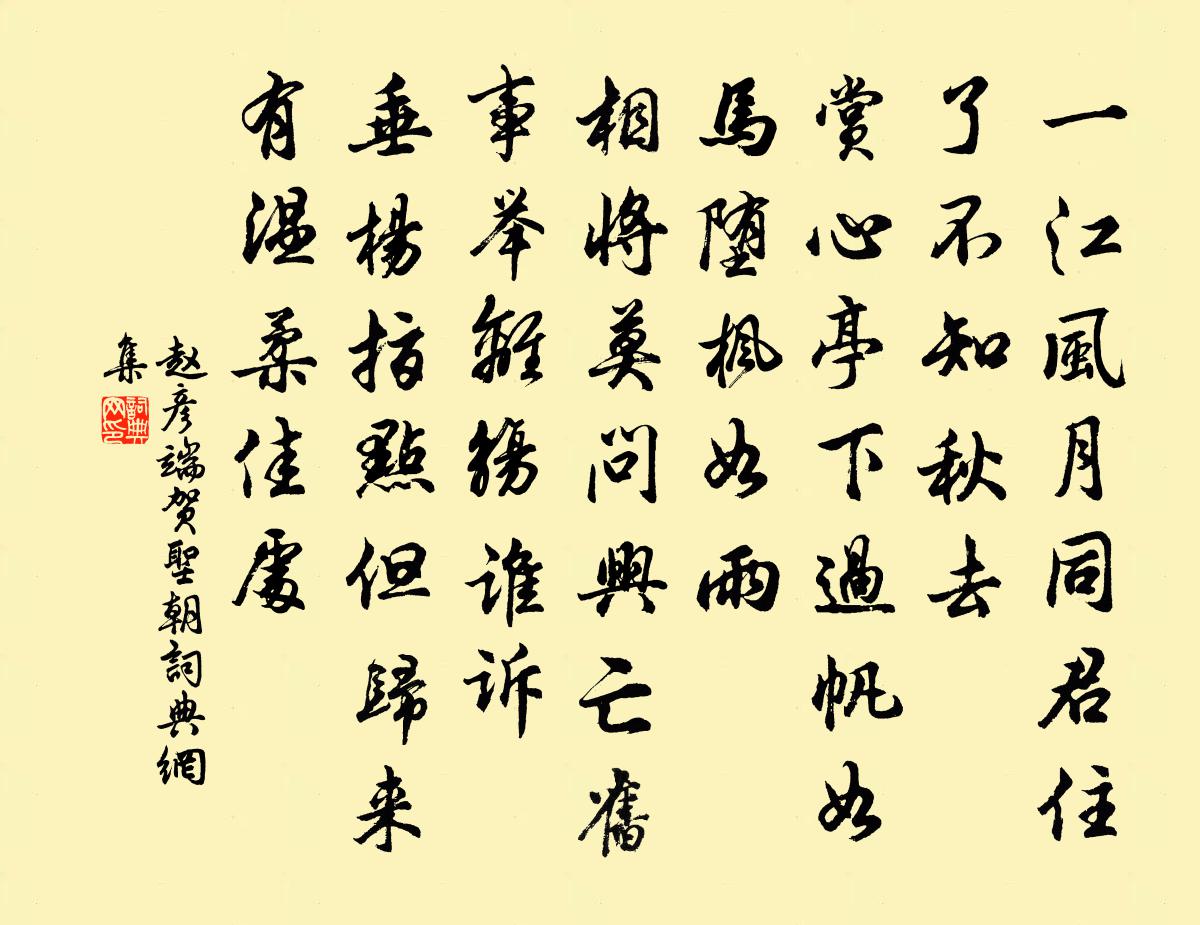 一江風月同君住
了不知秋去
賞心亭下過帆如
馬墮楓如雨
相將莫問興亡舊
事举離觴誰訴
垂楊指點但歸来
有溫柔佳處
赵彦端贺聖朝詞典網
集
詞典
网印